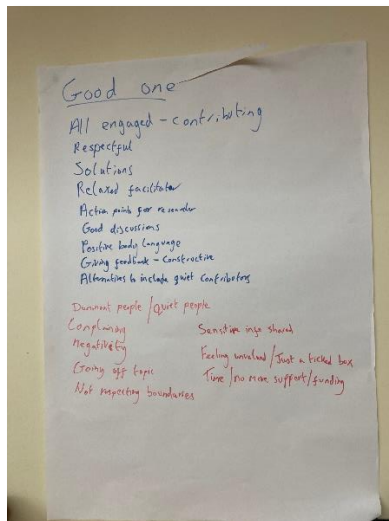 Good one
All engaged - contributing
Respectful
Solutions
Relaxed facilitator
Action points for researcher
Good discussions
Positive body language
Giving feedback - constructive
Alternatives to include quiet contributors
Dominant people / quiet people
Complaining
Negativity
Going off topic
Not respecting boundaries
Sensitive info shared
Feeling unvalued / Just a ticked box
Time / no more support / funding